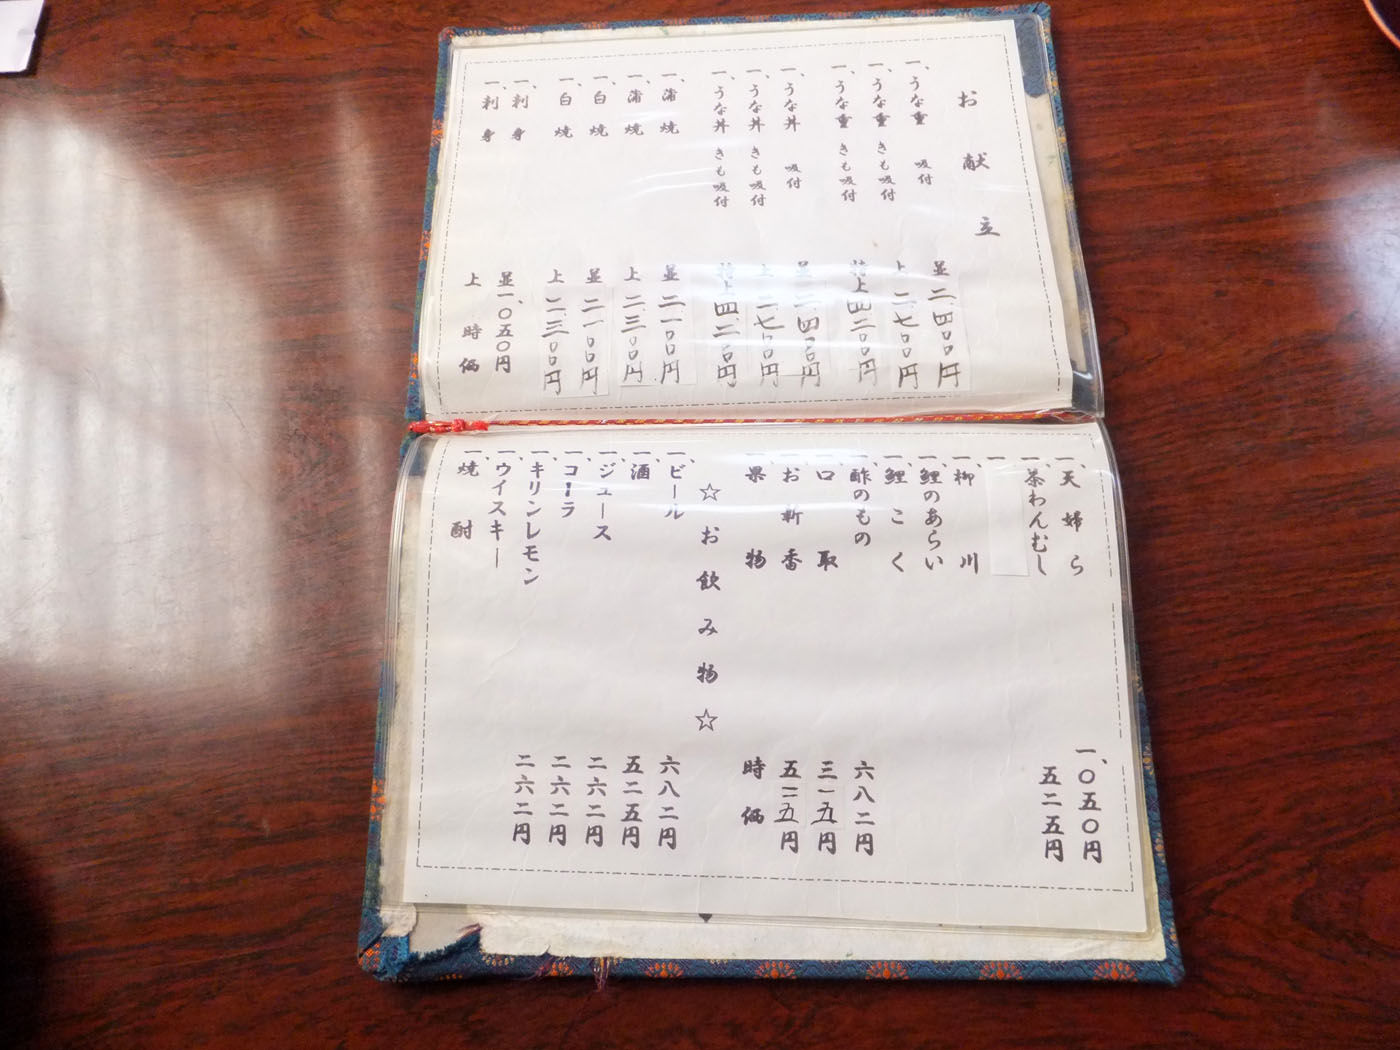 お献立
一、うな重 吸付 並 二、四〇〇円
一、うな重 きも吸付 上 二、七〇〇円
一、うな重 きも吸付 特上 四、二〇〇円
一、うな丼 吸付 並 二、四〇〇円
一、うな丼 きも吸付 上 二、七〇〇円
一、うな丼 きも吸付 特上 四、二〇〇円
一、蒲焼 並 二、一〇〇円
一、蒲焼 上 二、三〇〇円
一、白焼 並 二、一〇〇円
一、白焼 上 二、三〇〇円
一、刺身 並 一、〇五〇円
一、刺身 上 時価
一、天婦ら 一、〇五〇円
一、茶わんむし 五二五円
一、
一、柳川
一、鯉のあらい
一、鯉こく
一、酢のもの 六八二円
一、口取 三一五円
一、お新香 五二五円
一、果物 時価
☆お飲み物☆
一、ビール 六八二円
一、酒 五二五円
一、ジュース 二六二円
一、コーラ 二六二円
一、キリンレモン 二六二円
一、ウイスキー
一、焼酎